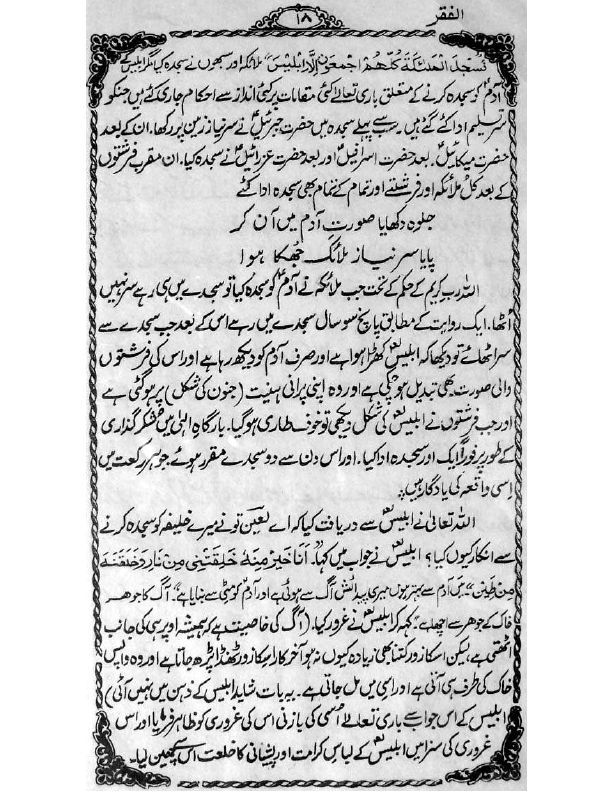 الفقر
۱۸
فَسَجَدَ الْمَلٰئِكَةُ كُلُّهُمْ اَجْمَعُوْنَ اِلَّا اِبْلِيْسَ" ملائکہ اور سبھوں نے سجدہ کیا مگر ابلیس نے
آدمؑ کو سجدہ کرنے کے متعلق باری تعالےٰ کئی مقامات پر کئی انداز سے احکام جاری کئے ہیں جنکو
سر تسلیم ادا کئے گئے ہیں۔ سب سے پہلے سجدہ میں حضرت جبرئیلؑ نے سر نیاز زمین پر رکھا۔ ان کے بعد
حضرت میکائیلؑ۔ بعد حضرت اسرافیلؑ اور بعد حضرت عزرائیلؑ نے سجدہ کیا۔ ان مقرب فرشتوں
کے بعد کل ملائکہ اور فرشتے اور تمام کے تمام بھی سجدہ ادا کئے
جلوہ دکھایا صورتِ آدم میں آن کر
پایا سرِ نیاز ملائک جُھکا ہوا
اللہ رب کریم کے حکم کے تحت جب ملائکہ نے آدمؑ کو سجدہ کیا تو سجدے میں ہی رہے سر نہیں
اُٹھا۔ ایک روایت کے مطابق پانچ سو سال سجدے میں رہے اس کے بعد جب سجدے سے
سر اٹھائے تو دیکھا کہ ابلیس کھڑا ہوا ہے اور صرف آدم کو دیکھ رہا ہے اور اس کی فرشتوں
والی صورت بھی تبدیل ہو چکی ہے اور وہ اپنی پرانی ہئیت (جنون کی شکل) پر ہو گئی ہے
اور جب فرشتوں نے ابلیس کی شکل دیکھی تو خوف طاری ہو گیا۔ بارگاہِ الہٰی میں شکر گذاری
کے طور پر فوراً ایک اور سجدہ ادا کیا۔ اور اس دن سے دو سجدے مقرر ہوئے جو ہر رکعت میں
اِسی واقعہ کی یادگار ہیں۔
اللہ تعالیٰ نے ابلیس سے دریافت کیا کہ اے لعین تو نے میرے خلیفہ کو سجدہ کرنے
سے انکار کیوں کیا؟ ابلیس نے جواب میں کہا۔ اَنَا خَيْرٌ مِّنْهُ خَلَقْتَنِيْ مِنْ نَّارٍ وَّخَلَقْتَهٗ
مِنْ طِيْنٍ۔ میں آدم سے بہتر ہوں میری پیدائش آگ سے ہوئی ہے اور آدم کو مٹی سے بنایا ہے"۔ آگ کا جوہر
خاک کے جوہر سے اچھا ہے" کہہ کر ابلیس نے غرور کیا۔ (آگ کی خاصیت ہے کہ ہمیشہ اوپر ہی کی جانب
اٹھتی ہے لیکن اسکا زور کتنا بھی زیادہ کیوں نہ ہو آخر کار اسکا زور ٹھنڈا پڑھ جاتا ہے اور وہ واپس
خاک کی طرف ہی آتی ہے اور اسی میں مل جاتی ہے۔ یہ بات شاید ابلیس کے ذہن میں نہیں آئی)
ابلیس کے اس جواب سے باری تعالےٰ اسی کی اس کی غروری کو ظاہر فرمایا اور اس
غروری کی سزا میں ابلیس کے لباسِ کرامت اور پیشانی کا خلعت اس سے چھین لیا۔